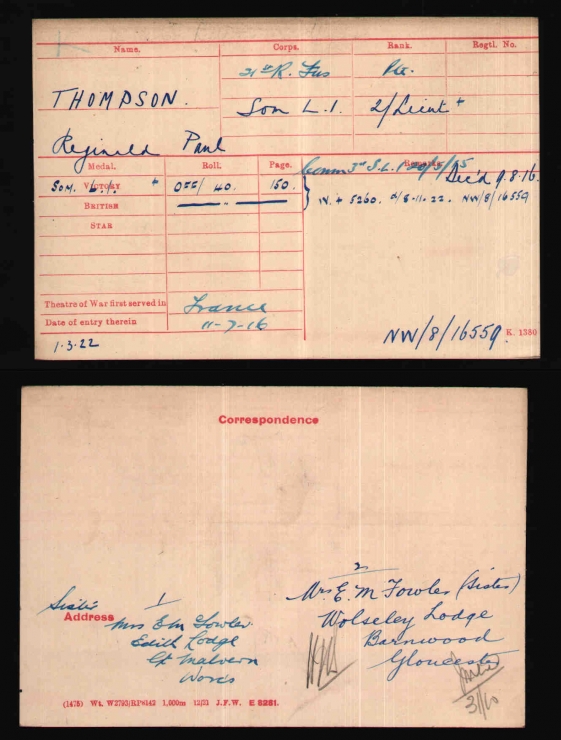 Name. Corps. Rank. Regtl. No.
21st R. Fus Pte.
THOMPSON. Som L.I. 2/Lieut +
Reginald Paul
Medal. Roll. Page. Remarks.
Comm 3rd S.L.I. Dec'd 9.8.16.
VICTORY + OFF/ 40. 150.
SOM. L.I.
BRITISH —— " ——
IV. + 5260. 8-11-22. NW/8/16559
STAR
Theatre of War first served in France
Date of entry therein 11-7-16
1.3.22 NW/8/16559. K. 1380
Correspondence
Sister 1
Address Mrs E M Fowler
Edith Lodge
Gt Malvern
Worcs
2
Mrs. E. M Fowler (Sister)
Wolseley Lodge
Barnwood
Gloucester
31/10
(1478) Wt. W2793/RP6142 1,000m 12/21 J.F.W. E 8281.